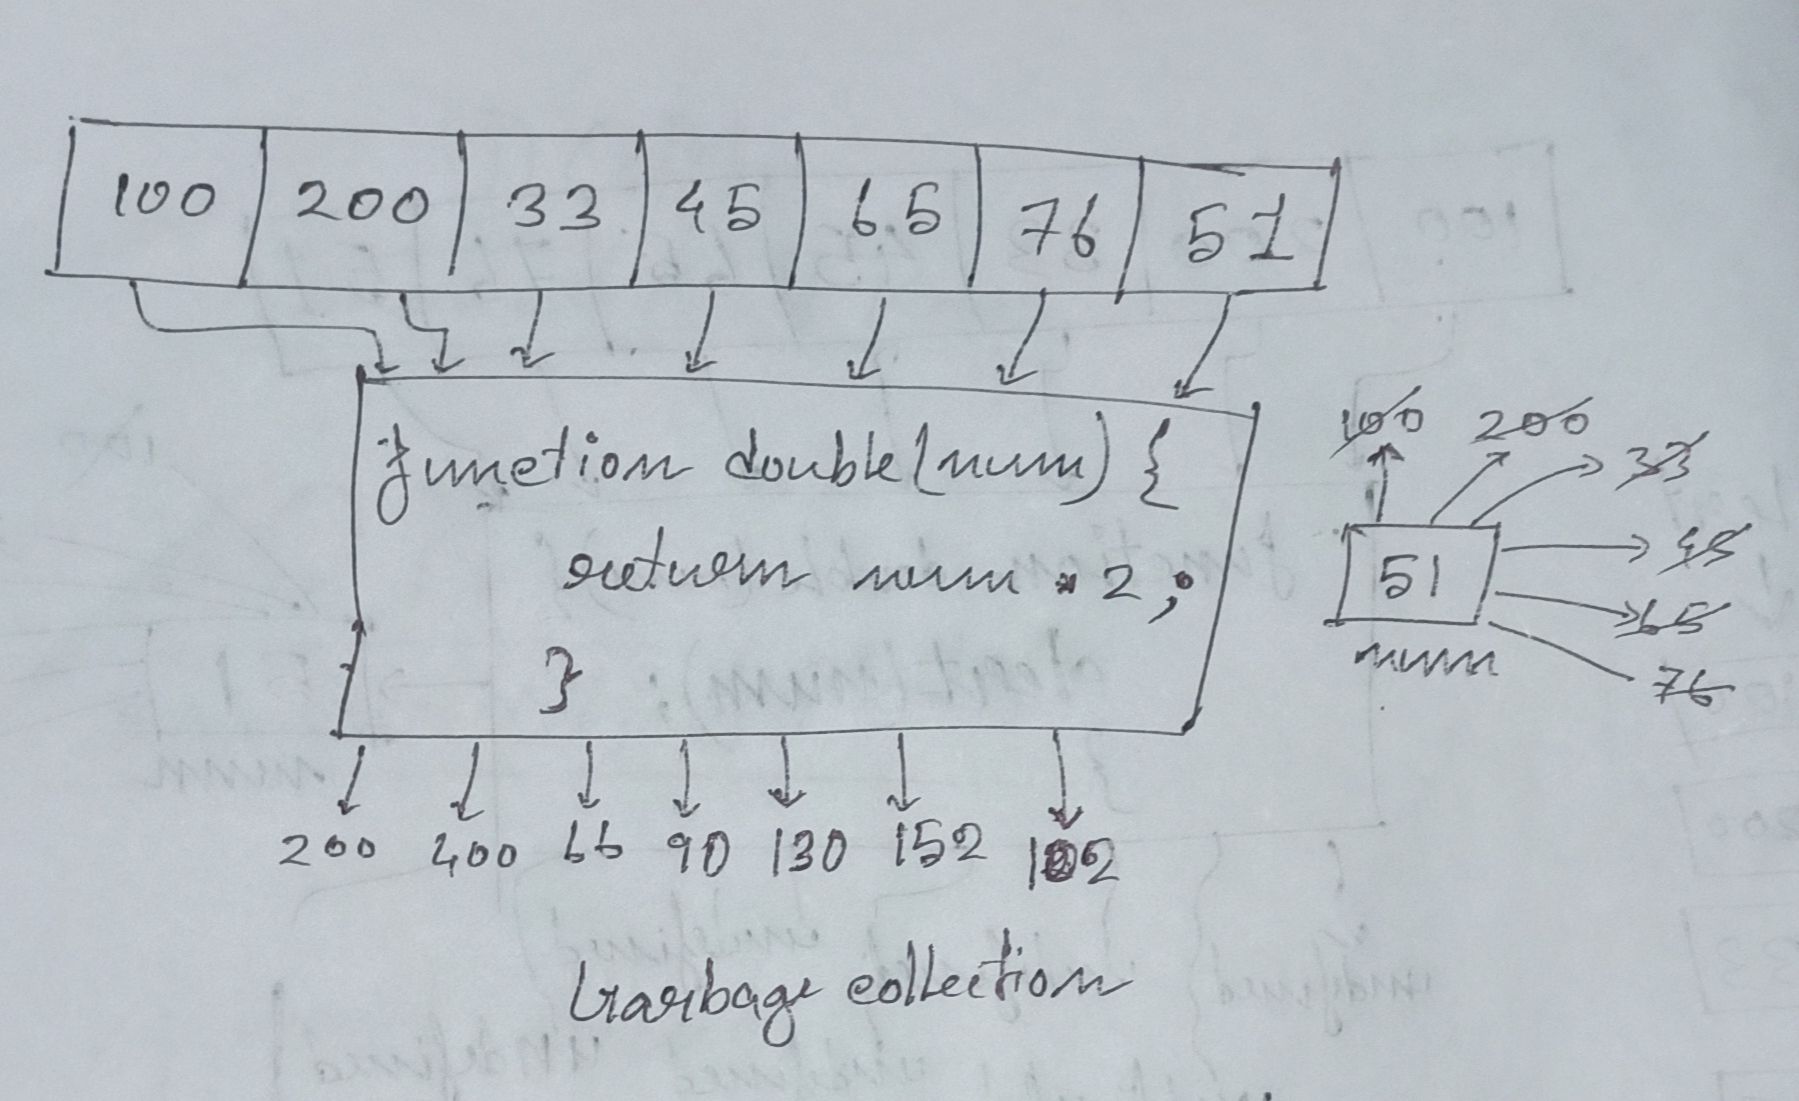 100 200 33 45 65 76 51
function double(num) {
return num * 2;
}
100 200 33
45
51
65
num
76
200 400 66 90 130 152 102
Garbage collection